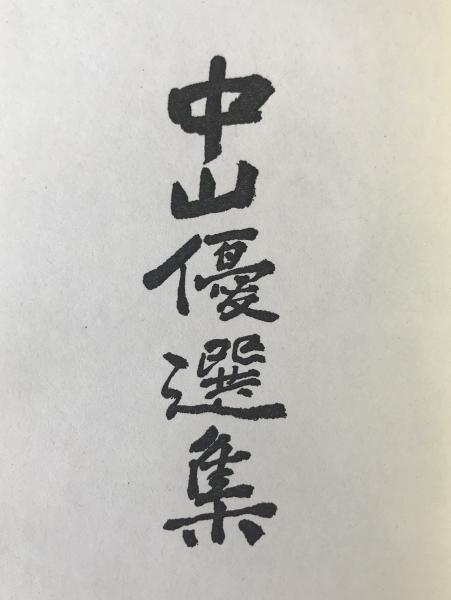 中山優選集